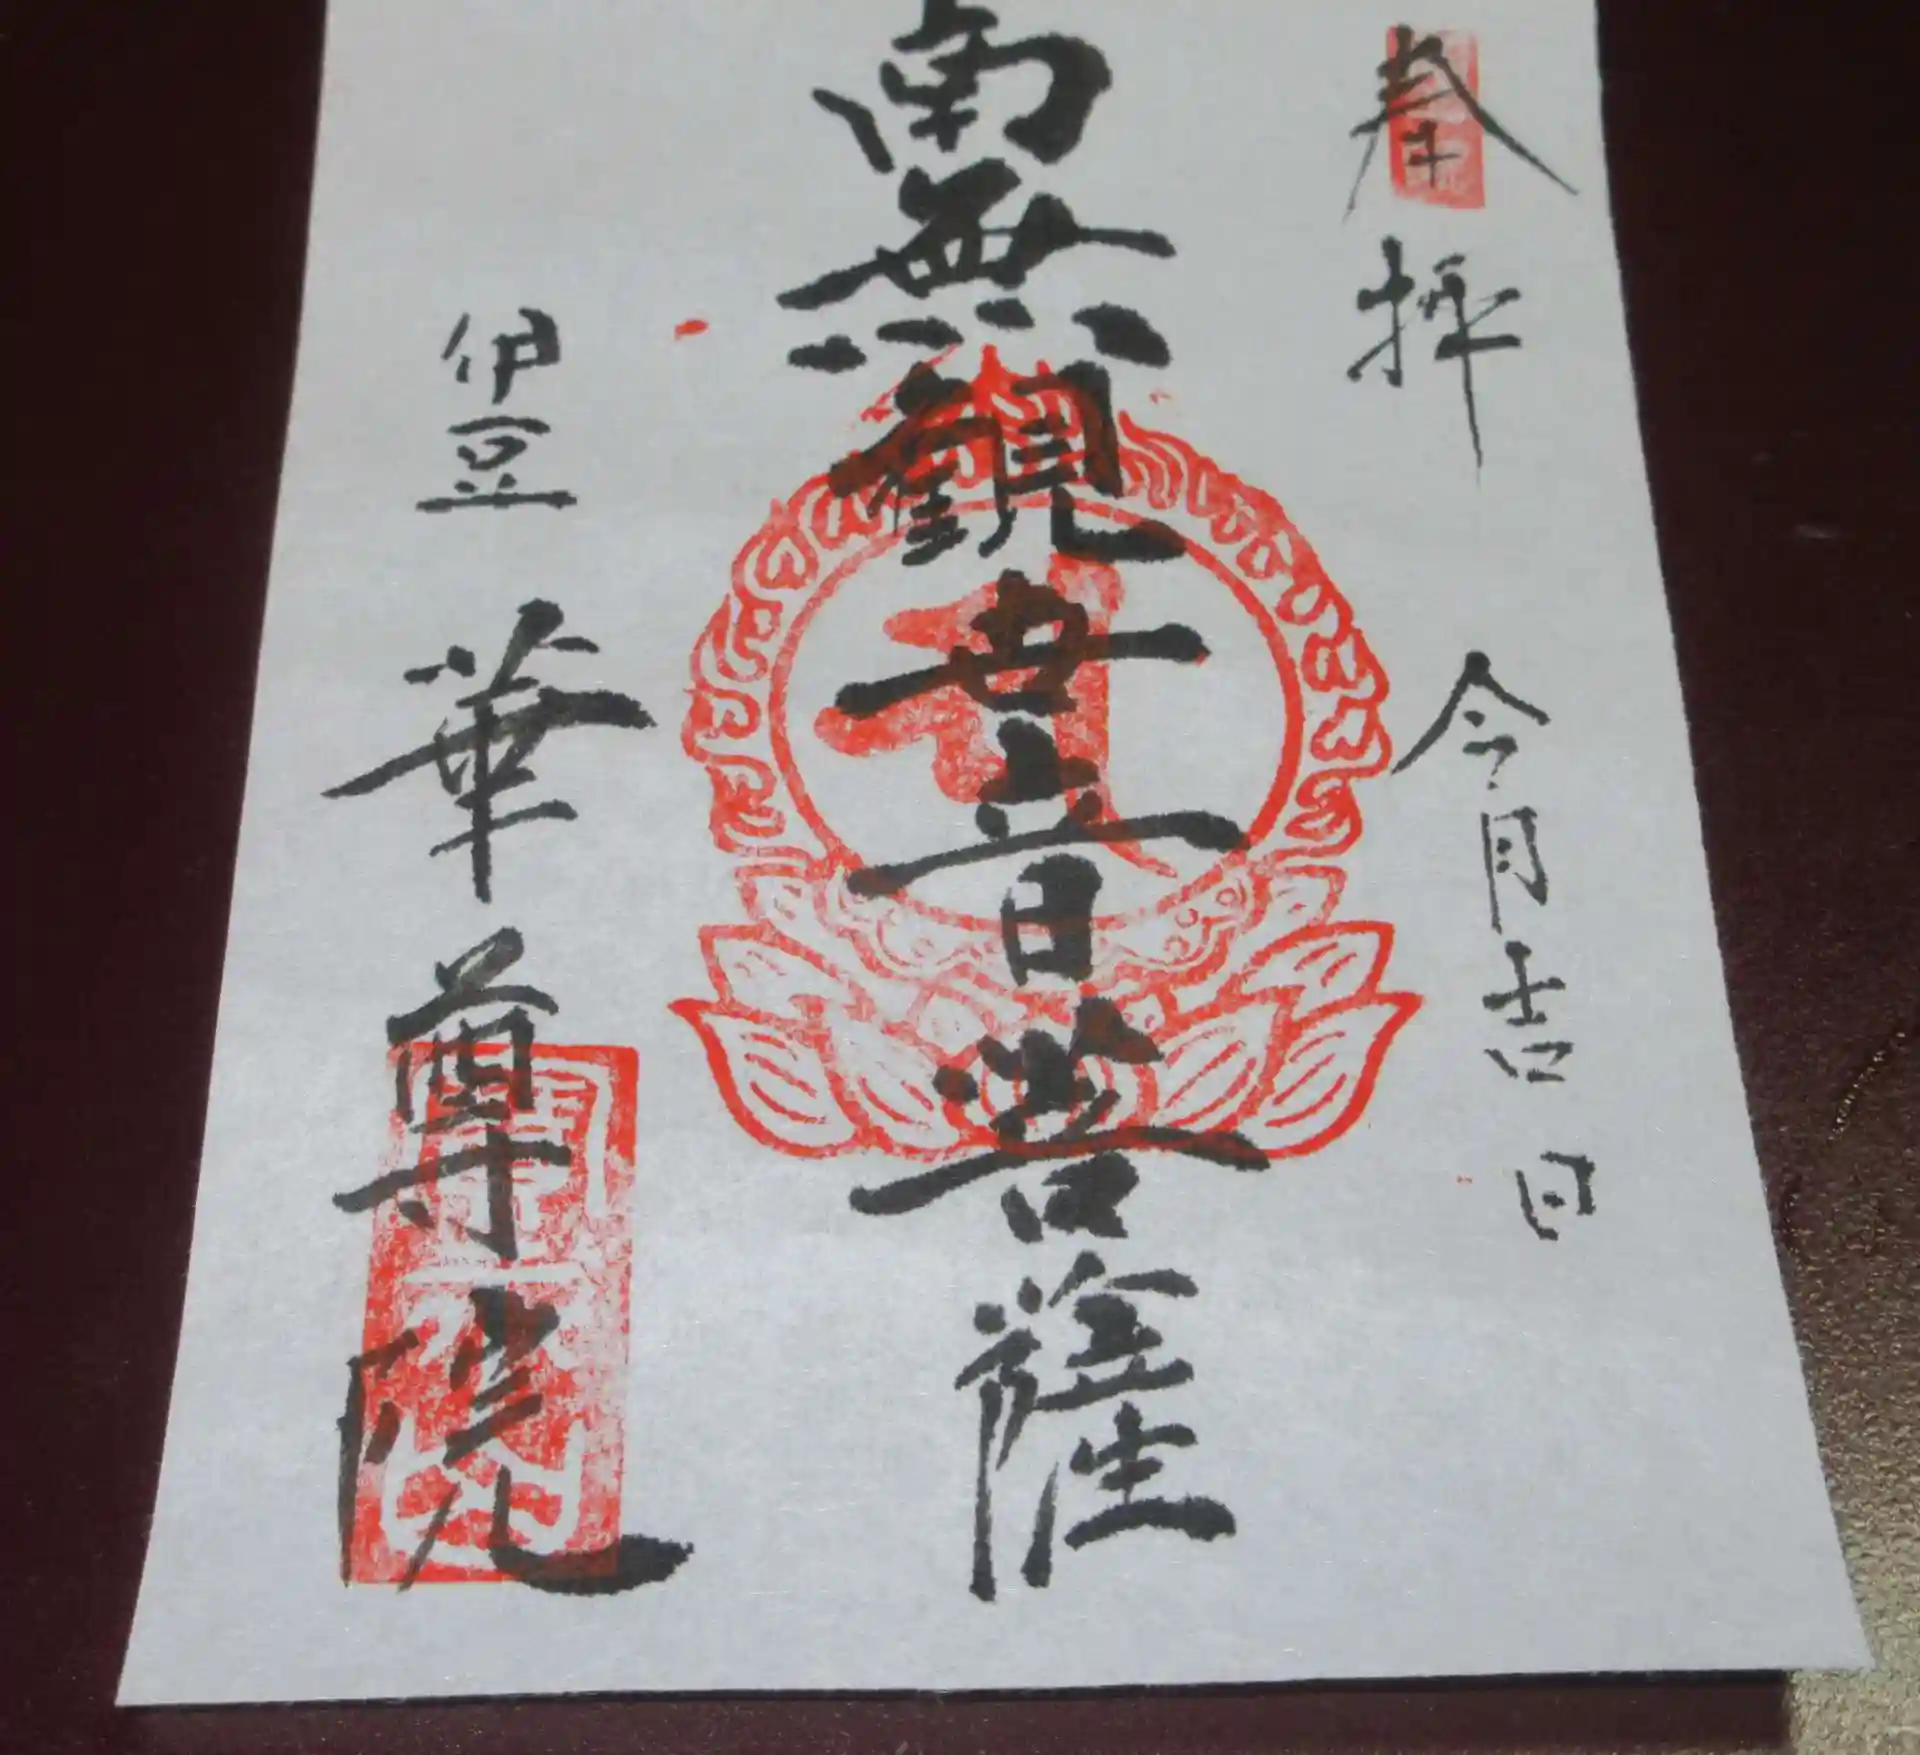 奉拝
今月吉日
南無観世音菩薩
伊豆
華尊院